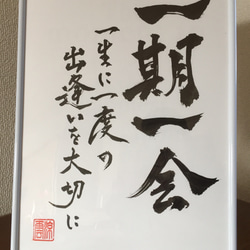 一期一会
一生に一度の
出逢いを大切に